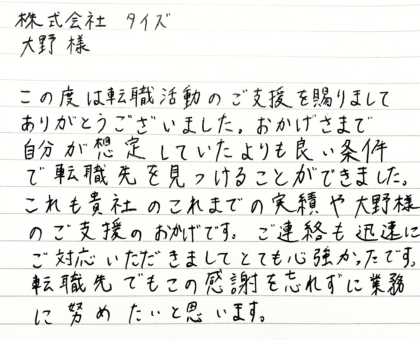 株式会社 タイズ
大野様
この度は転職活動のご支援を賜りまして
ありがとうございました。おかげさまで
自分が想定していたよりも良い条件
で転職先を見つけることができました。
これも貴社のこれまでの実績や大野様
のご支援のおかげです。ご連絡も迅速に
ご対応いただきましてとても心強かったです。
転職先でもこの感謝を忘れずに業務
に努めたいと思います。